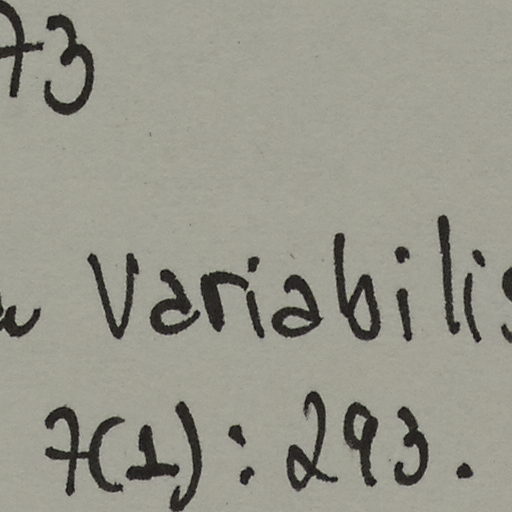 73
variabilis
7(1): 293.